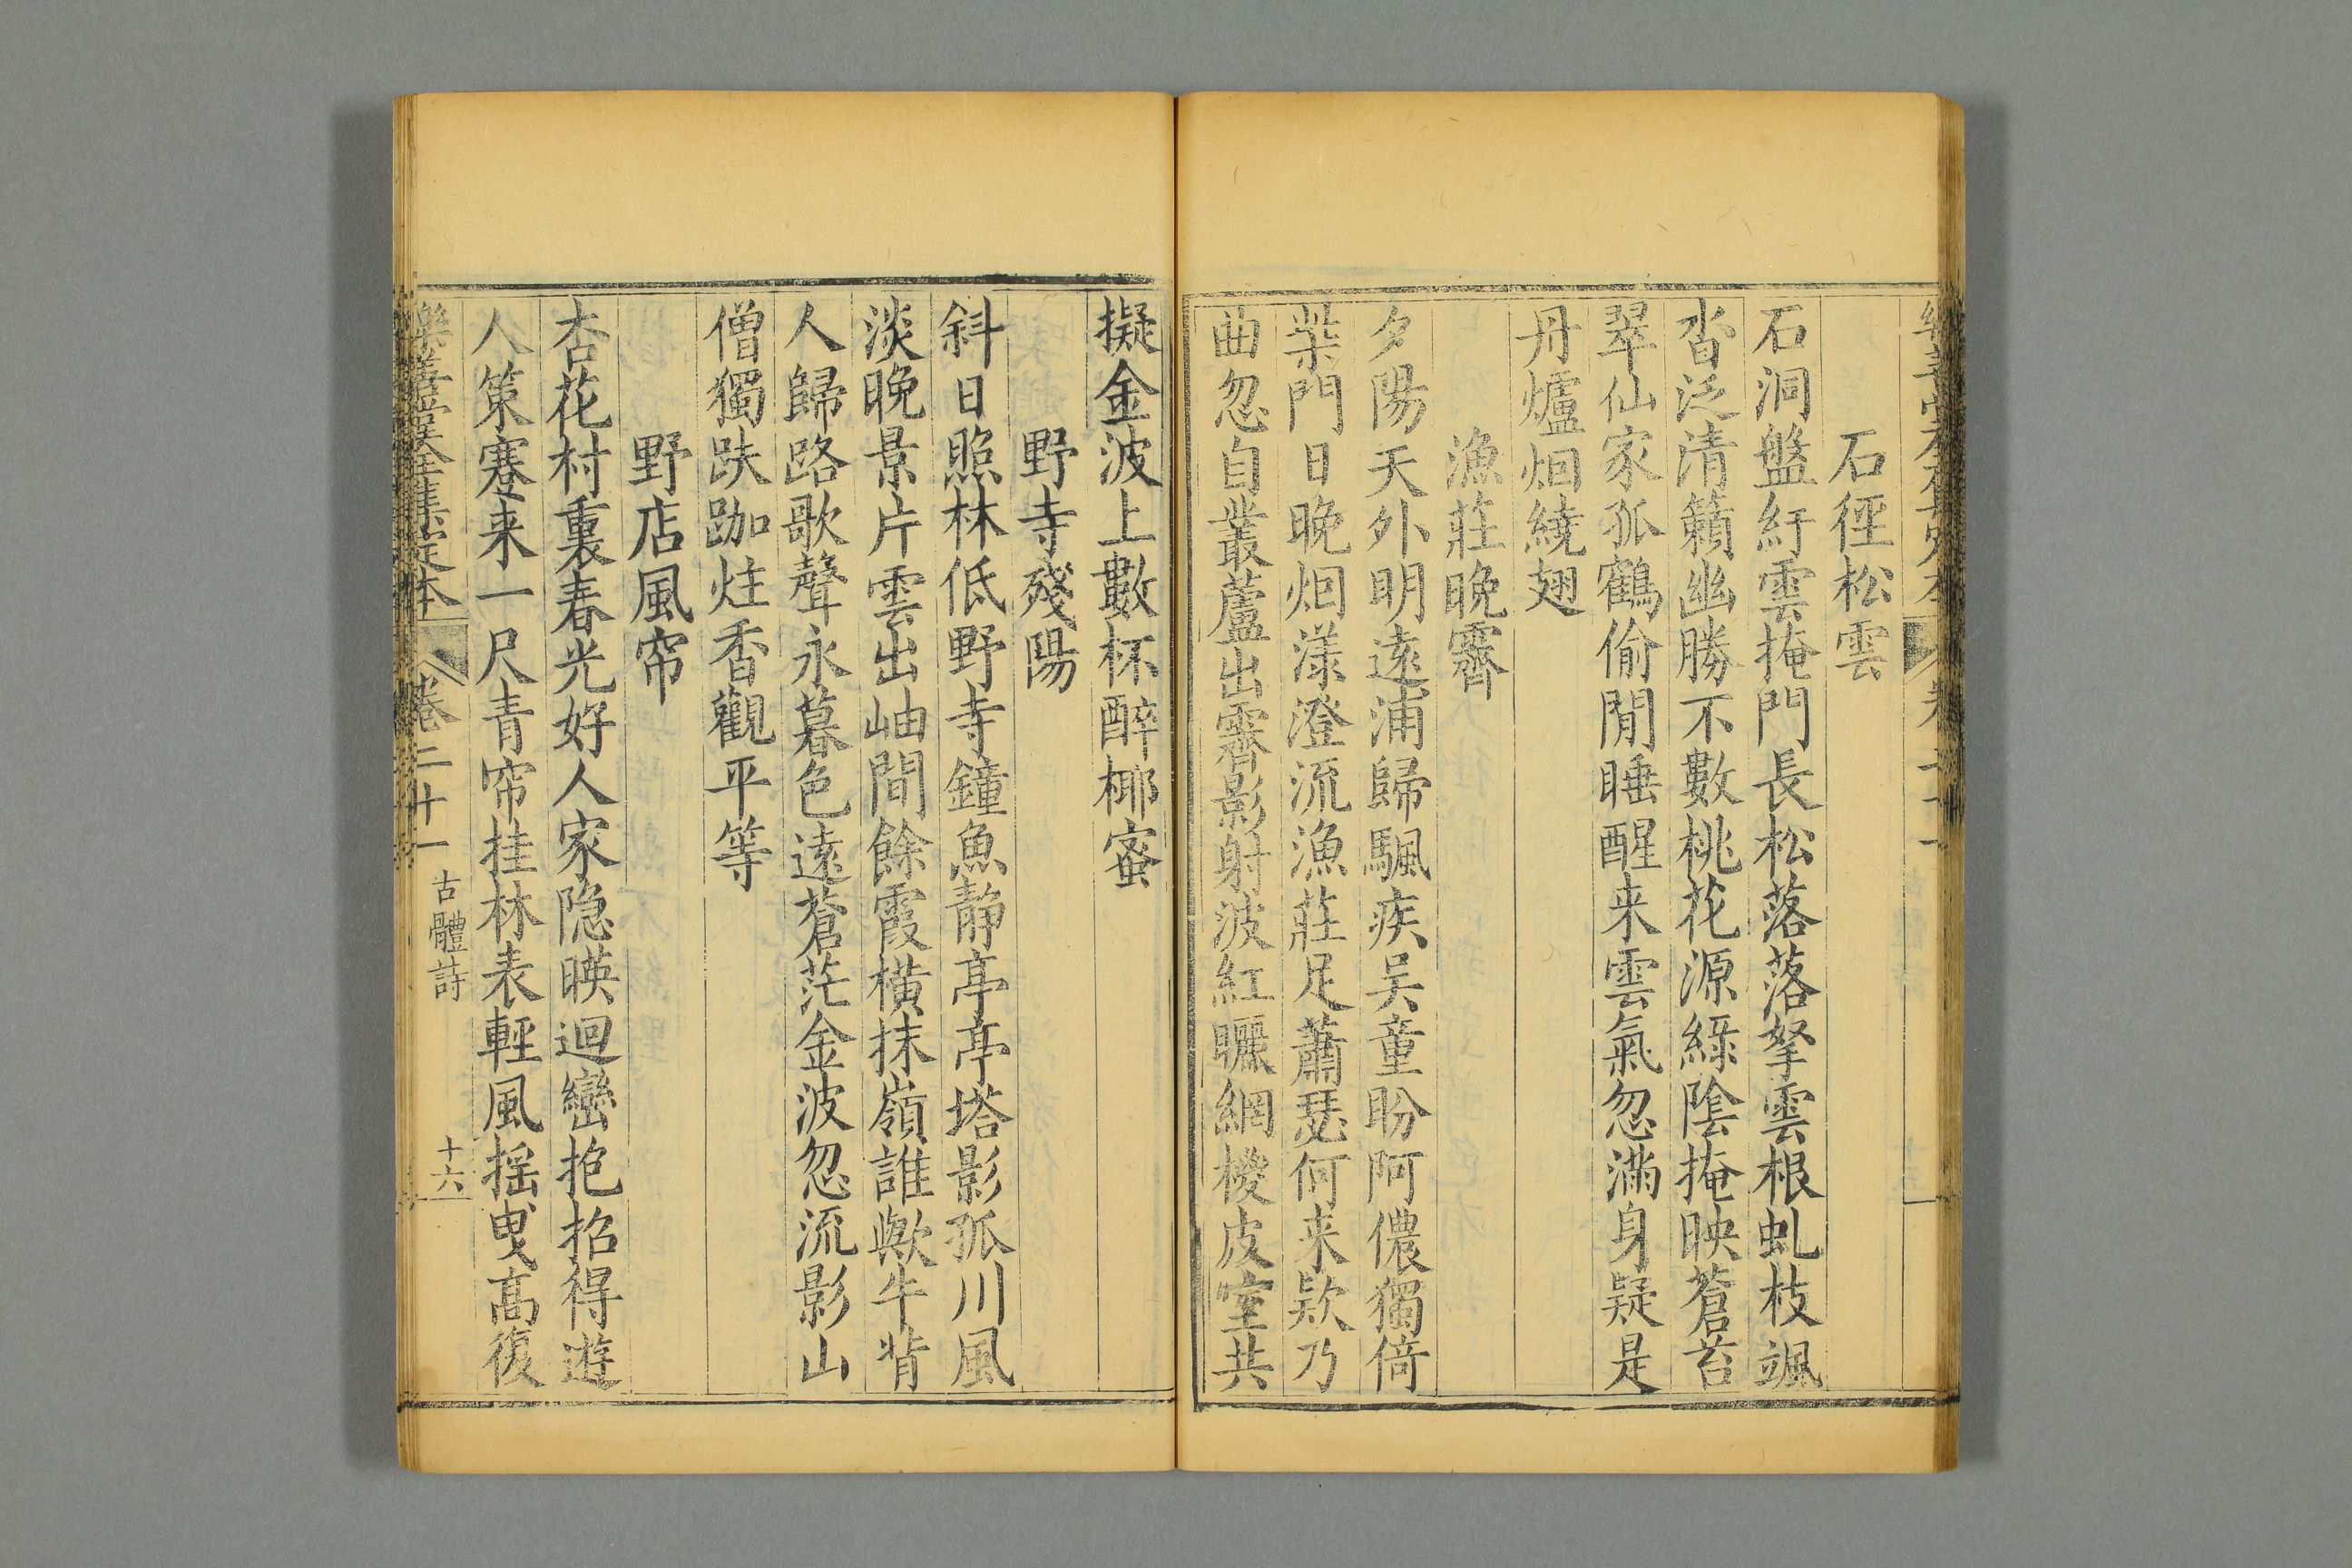 石徑松雲
石洞盤紆雲掩門長松落落拏雲根虬枝颯
沓泛清籟幽勝不數桃花源綠陰掩映蒼苔
翠仙家孤鶴偷閒睡醒来雲氣忽滿身疑是
丹爐烟繞翅
漁莊晚霽
夕陽天外明遠浦歸颿疾吴童盼阿儂獨倚
柴門日晚烟漾澄流漁莊足蕭瑟何来欵乃
曲忽自叢蘆出霽影射波紅曬網椶皮室共
擬金波上數杯醉椰蜜
野寺殘陽
斜日照林低野寺鐘魚静亭亭塔影孤川風
淡晚景片雲出岫間餘霞横抹嶺誰歟牛背
人歸路歌聲永暮色遠蒼茫金波忽流影山
僧獨趺跏炷香觀平等
野店風帘
杏花村裏春光好人家隐暎迴巒抱招得遊
人策蹇来一尺青帘挂林表輕風揺曳高復
樂善堂全集定本 卷二十一 古體詩 十六